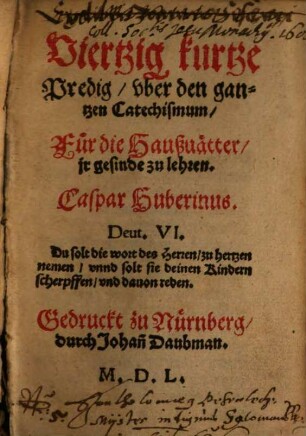 Coll. Soc. Jesu Monachij. 160
Viertzig kurtze
Predig / vber den gan-
tzen Catechismum /
Für die Haußuätter /
jr gesinde zu lehren.
Caspar Huberinus.
Deut. VI.
Du solt die wort des Herren / zu hertzen
nemen / vnnd solt sie deinen Kindern
scherpffen / vnd dauon reden.
Gedruckt zu Nürnberg /
durch Johañ Daubman.
M. D. L.